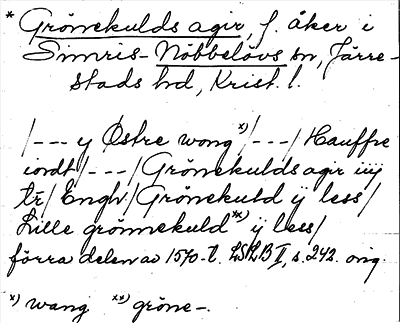 * Grönekulds agir, f. åker i
Simris-Nöbbelövs sn, Järre-
stads hd, Krist. l.
/--- y Østre wong x)/---/ Hauffre
iordt/---/Grönekulds agir iiij
tr/ Engh/Grönekuld ÿ less/
Lille grönnekuld xx) ÿ less/
förra delen av 1570-t. LSLB II, s. 242. orig.
x) wang xx) gröne-.